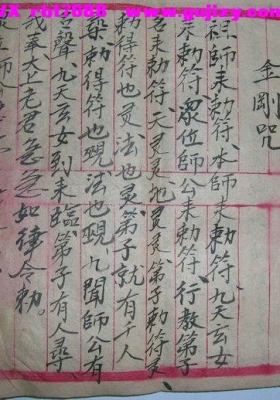 rbt7886 www.gujixy.com
金剛咒
祖師來勅符、本師來勅符、九天玄女
來勅符、眾位師公來勅符、行教弟子
來勅符、天灵灵地灵灵、弟子勅符灵
勅得符也灵法也灵、弟子就有千人
勅得符也覡法也覡、九聞師公有
聲、九天玄女到來臨、弟子有人尋
奉太上老君急急如律令勅。
位師